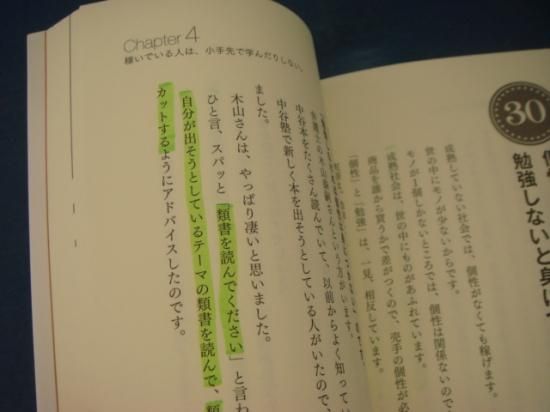 30
勉強しないと身に
成熟していない社会では、個性がなくても稼げます。
世の中にモノが少ないからです。
モノが1個しかないところでは、個性は関係ないので
成熟社会は、世の中にものがあふれています。
商品を誰から買うかで差がつくので、売手の個性が必
「個性」と「勉強」は、一見、相反しています。
Chapter 4
稼いでいる人は、小手先で学んだりしない。
さんという方がいます。
中谷本をたくさん読んでいて、以前からよく知ってい
中谷塾で新しく本を出そうとしている人がいたので、
ました。
木山さんは、やっぱり凄いと思いました。
ひと言、スパッと「類書を読んでください」と言わ
自分が出そうとしているテーマの類書を読んで、類
カットするようにアドバイスしたのです。